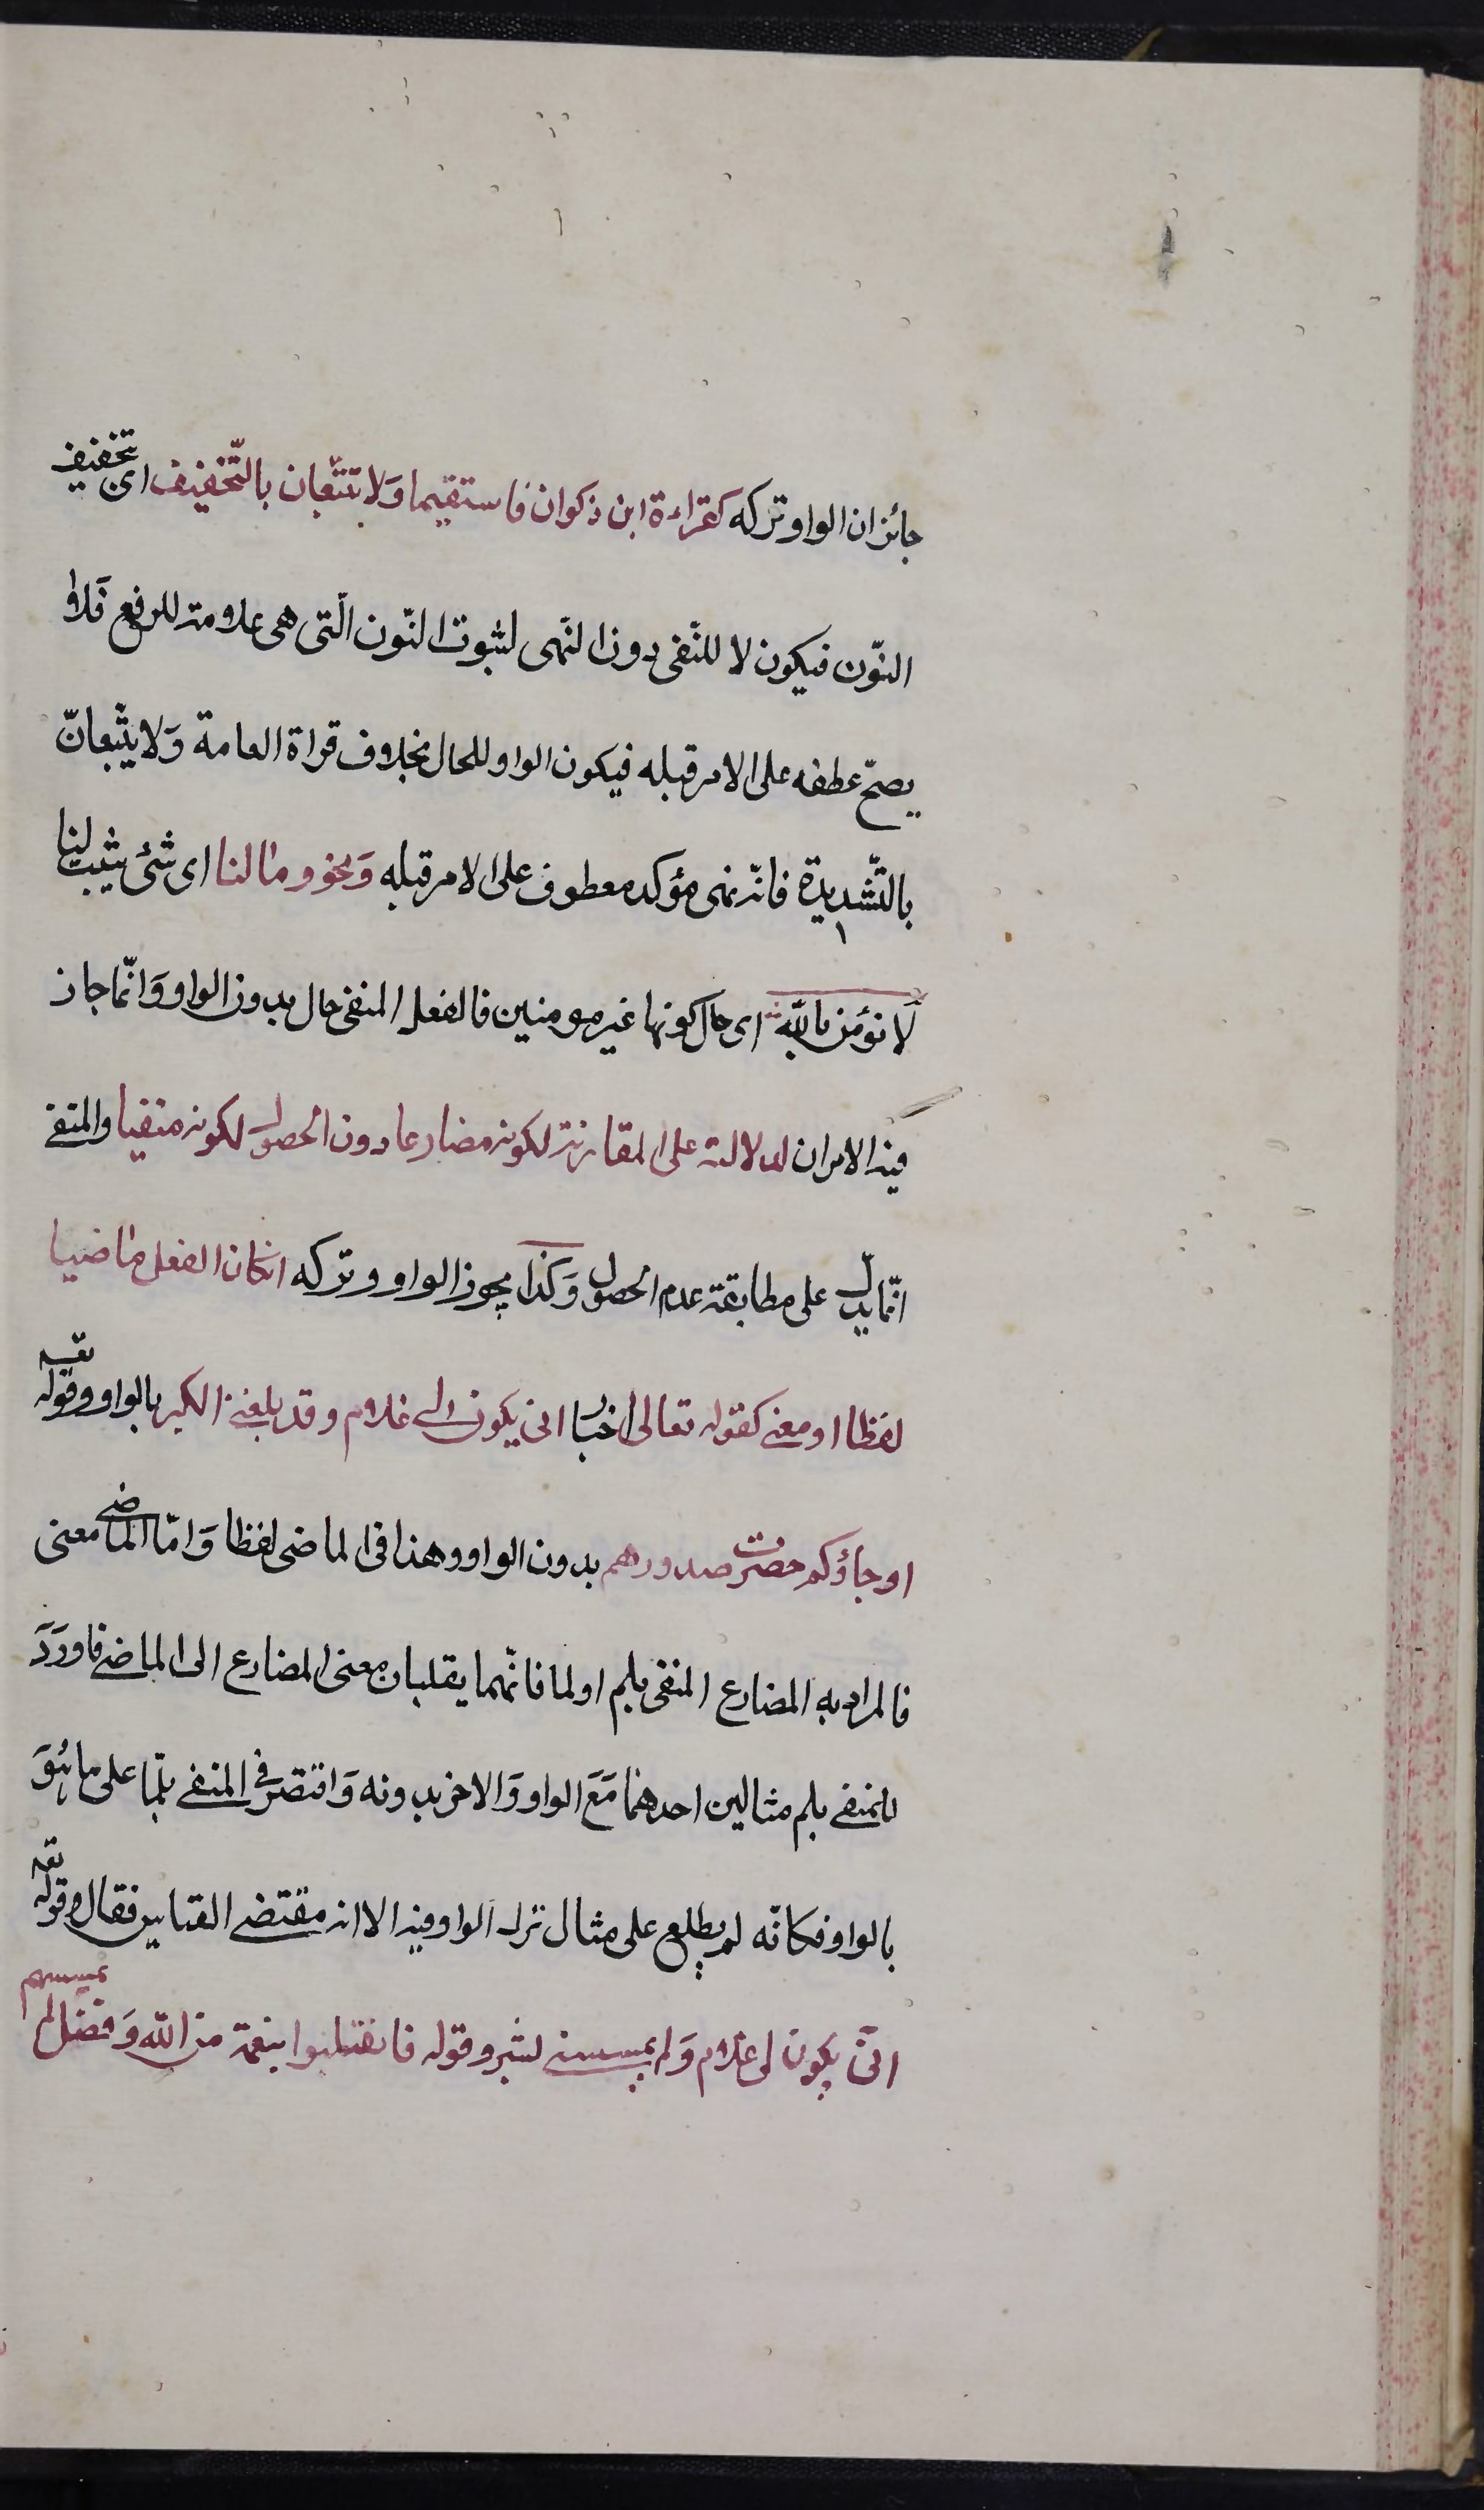 جائزان الواو وتركه كقراءة ابن ذكوان فاستقيما وَلا تتّبعان بالتّخفيف اى تخفيف
النّون فيكون لا للنّفى دون النّهى لثبوت النّون الّتى هى علامة للرفع فَلا
يصحّ عطفه على الامر قبله فيكون الواو للحال بخلاف قراة العامة وَلا يتّبعانّ
بالتّشديدة فانّه نهى مؤكد معطوف على الامر قبله وَنحو وما لنا اى شئ يثبت لنا
لَا نؤمن بالله اى حال كونها غير مومنين فالفعل المنفى حال بدون الواو وَانّما جاز
فيه الامران لدلالته على المقارنة لكونه مضارعا دون الحصول لكونه منفيا والمنفى
انّما يدلّ على مطابقة عدم الحصول وَكذا يجوز الواو وتركه انكان الفعل ماضيا
لفظا او معنى كقوله تعالى اخبارا انى يكون لى غلام وقد بلغنى الكبر بالواو وقوله تعه
او جاؤكم حضرت صدورهم بدون الواو وهذا فى الماضى لفظا وَامّا الماضى معنى
فالمراد به المضارع المنفى بلم او لما فانّهما يقلبان معنى المضارع الى الماضى فاورَدَ
للمنفى بلم مثالين احدهما مَعَ الواو وَالاخر بدونه وَاقتصر فى المنفى بلمّا على ما هُوَ
بالواو فكانّه لم يطلع على مثال ترك الواو فيه الا انه مقتضى القياس فقال وقوله تعه
انّى يكون لى غلام وَلم يمسسنى بشر وقوله فانقلبوا بنعمة من الله وَفضل لم يمسسهم